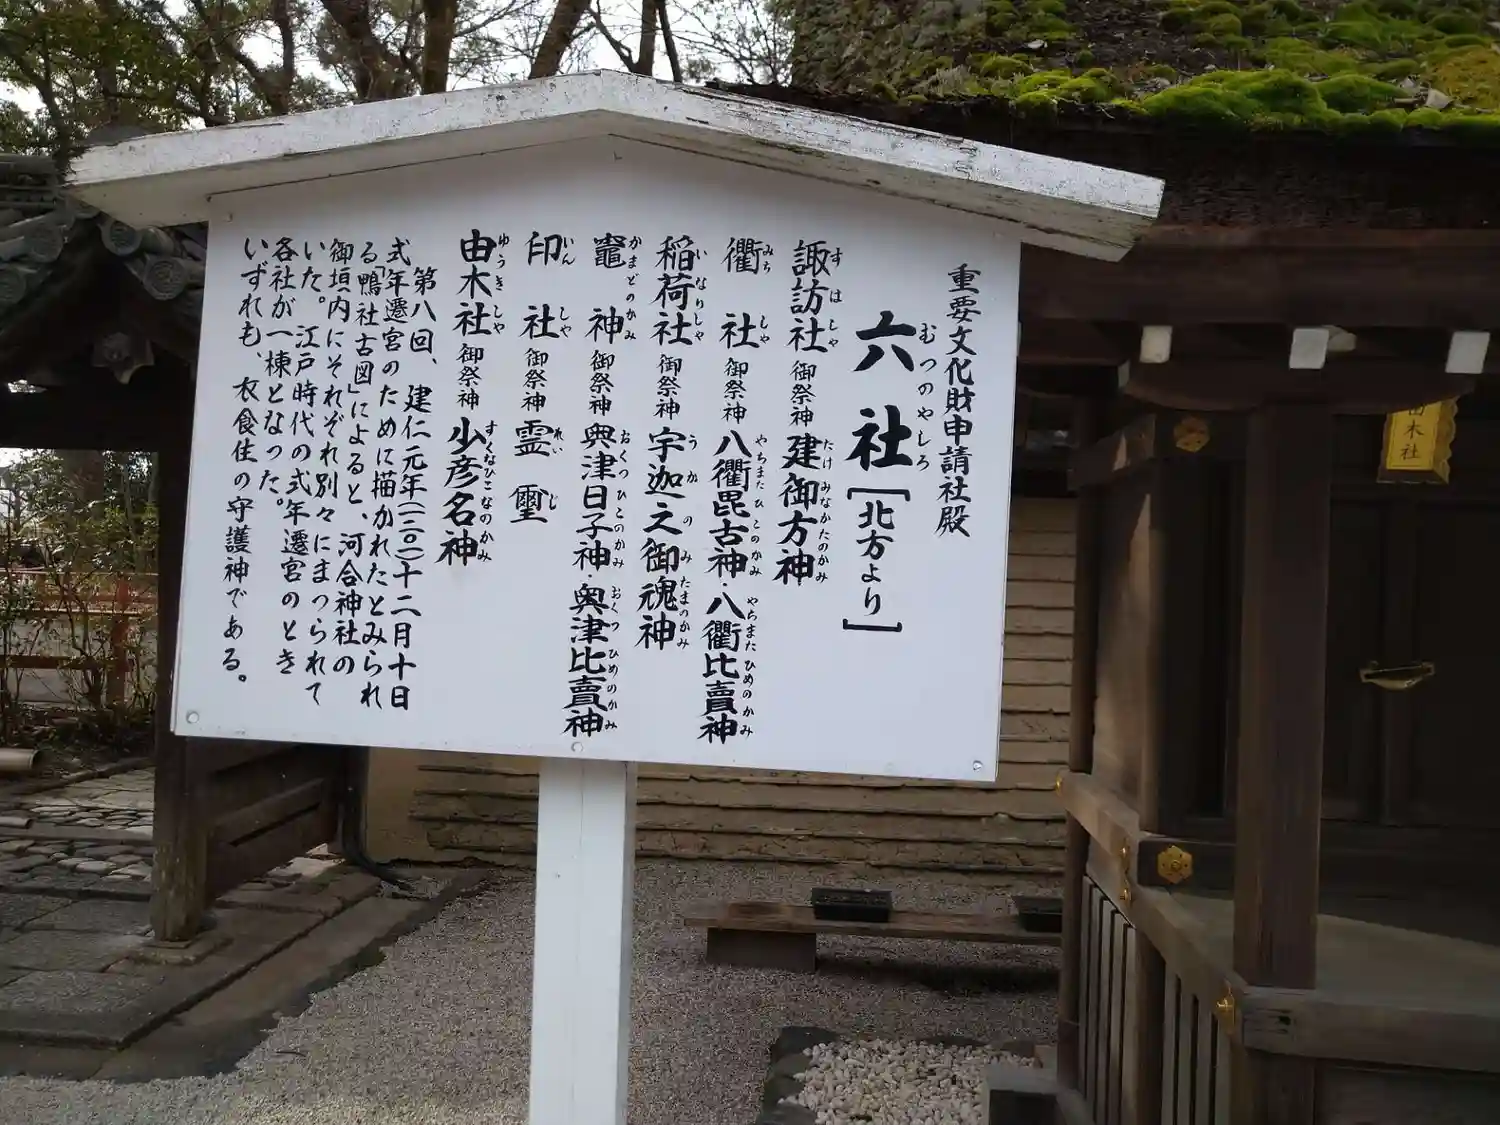 重要文化財申請社殿
六社[北方より]
むつのやしろ
諏訪社 御祭神 建御方神
すはしゃ たけみなかたのかみ
衢社 御祭神 八衢毘古神・八衢比賣神
みちしや やちまたひこのかみ やちまたひめのかみ
稲荷社 御祭神 宇迦之御魂神
いなりしや うかのみたまのかみ
竈神 御祭神 奥津日子神・奥津比賣神
かまどのかみ おくつひこのかみ おくつひめのかみ
印社 御祭神 霊璽
いんしや れいじ
由木社 御祭神 少彦名神
ゆうきしや すくなひこなのかみ
第八回、建仁元年(一二〇一)十二月十日
式年遷宮のために描かれたとみられ
る「鴨社古図」によると、河合神社の
御垣内にそれぞれ別々にまつられて
いた。江戸時代の式年遷宮のとき
各社が一棟となった。
いずれも、衣食住の守護神である。
由木社